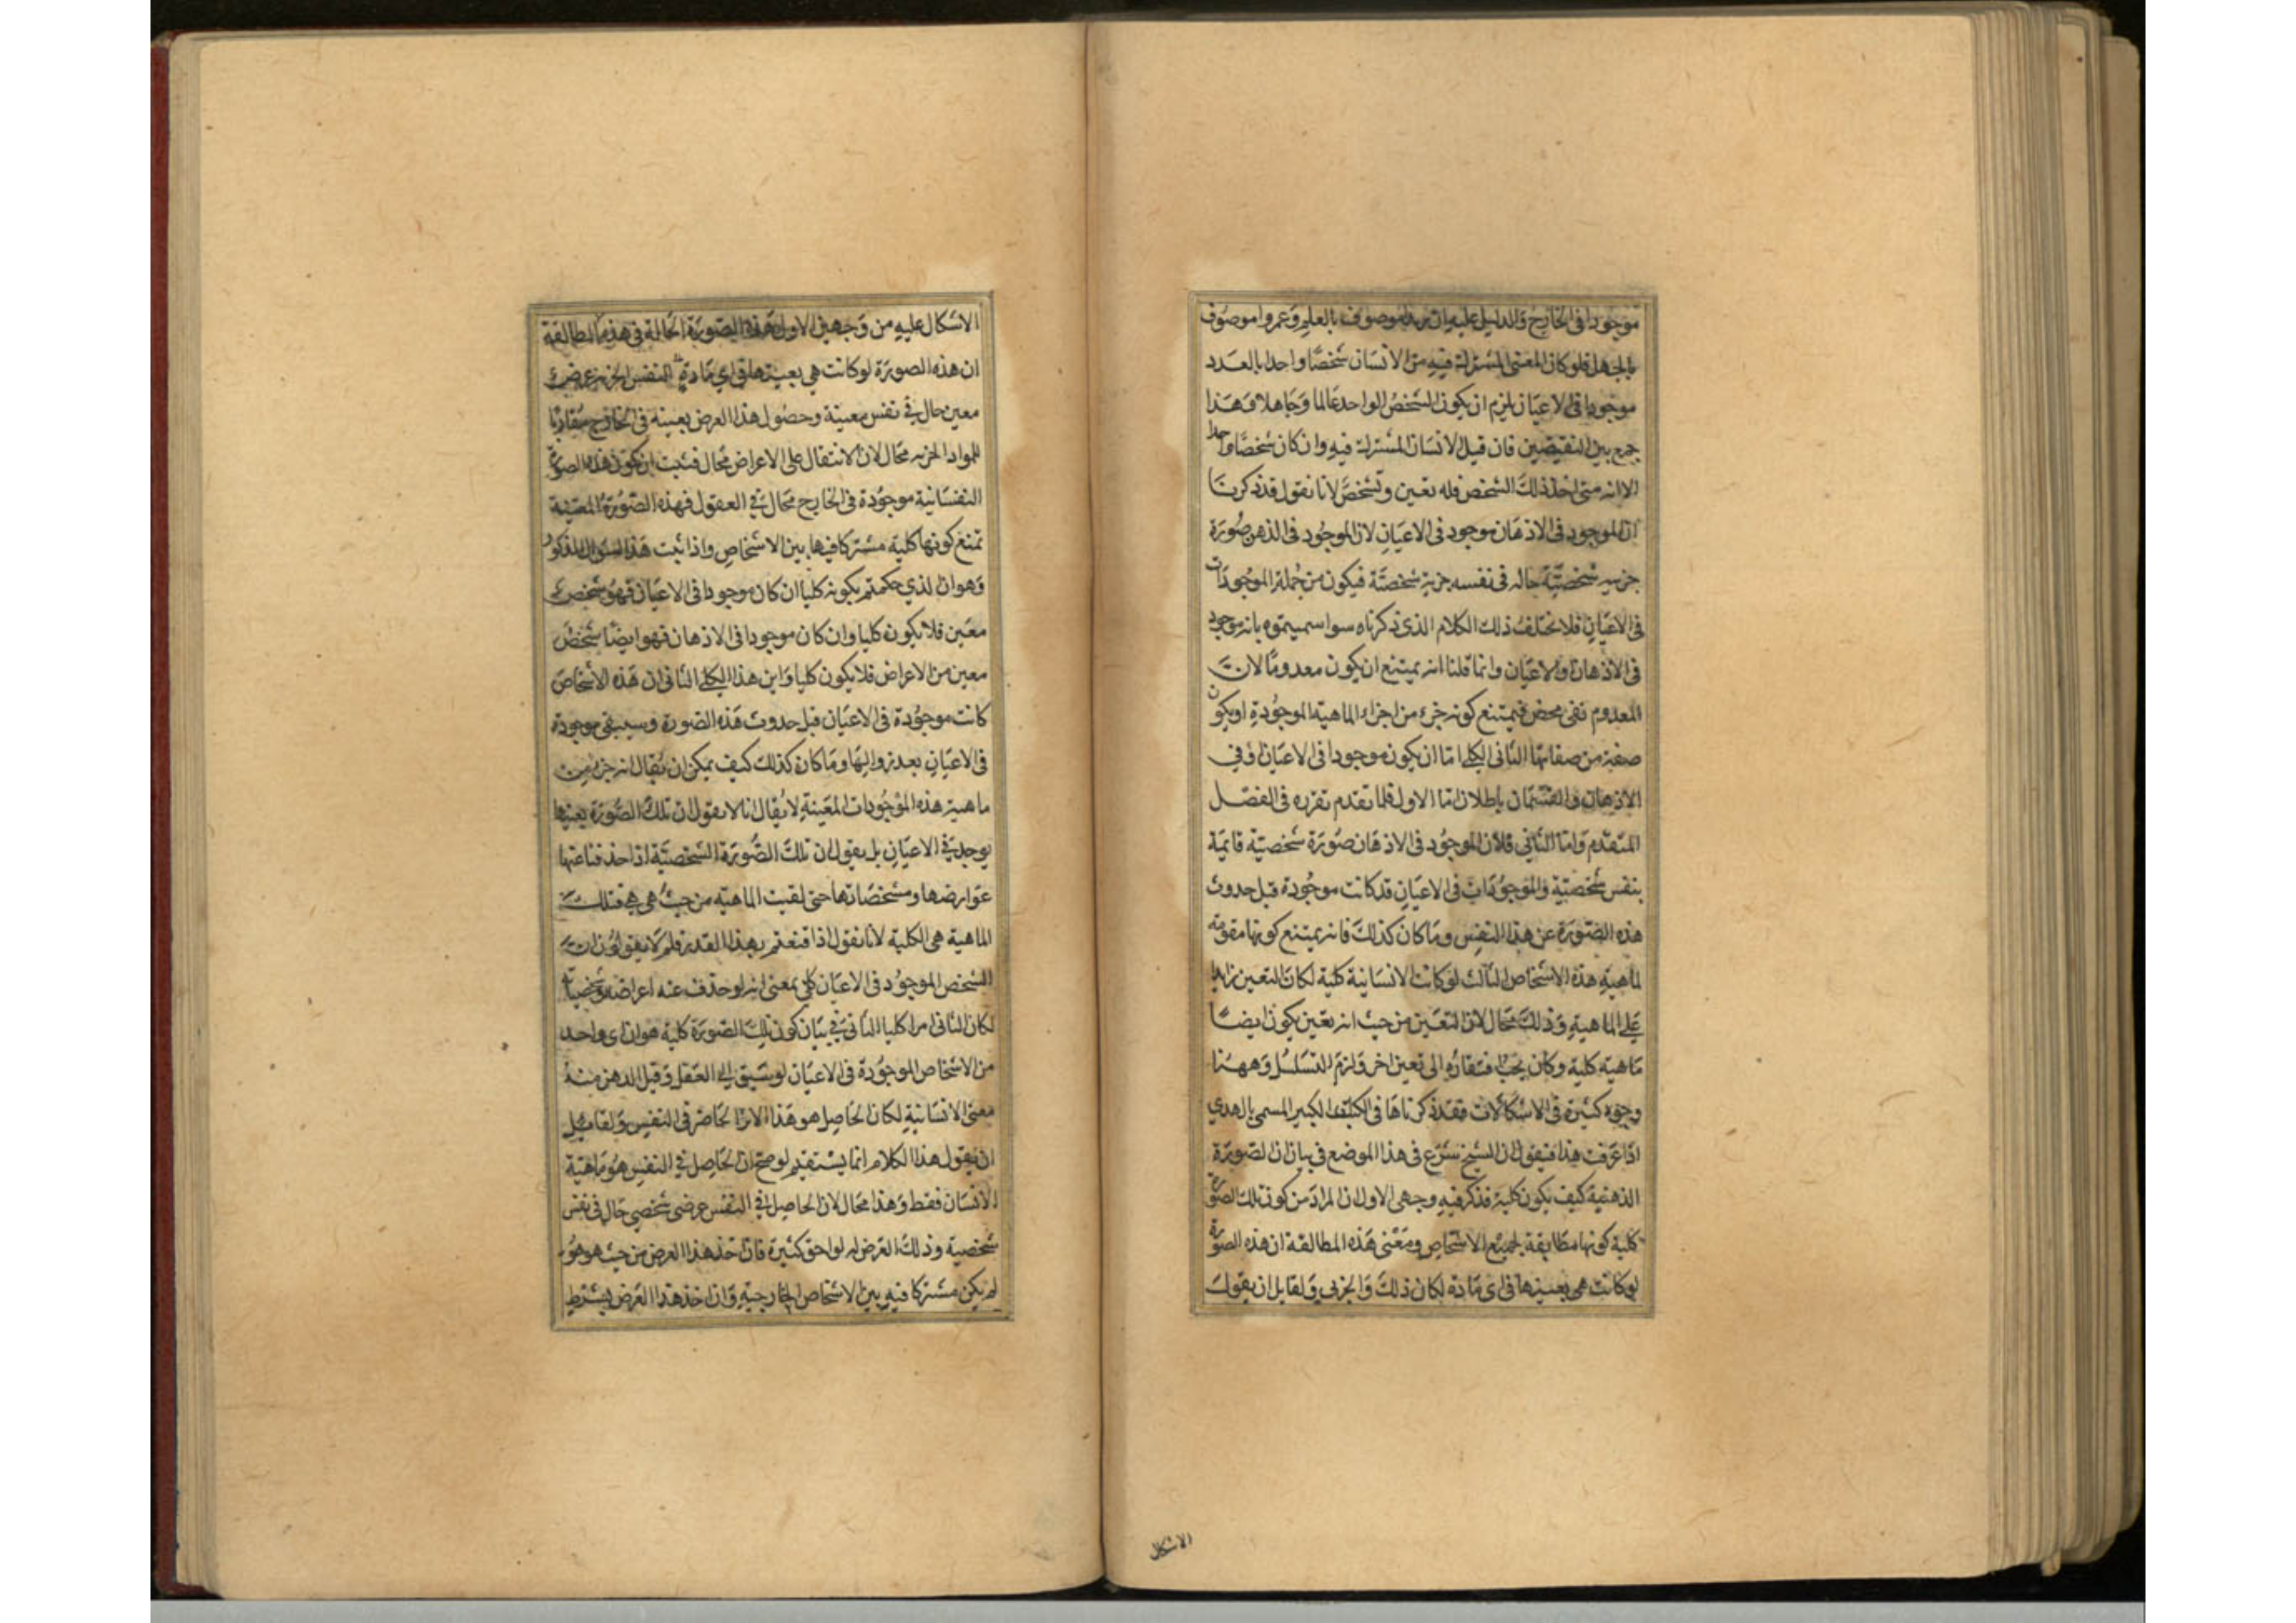 موجودا فى الخارج والدليل عليه ان زيدا موصوف بالعلم وعمروا موصوف
بالجهل فلو كان المعنى المشترك فيه من الانسان شخصا واحدا بالعدد
موجودا فى الاعيان يلزم ان يكون الشخص الواحد عالما وجاهلا وهذا
جمع بين النقيضين فان قيل الانسان المشترك فيه وان كان شخصا واحدا
الا انه متى اخذ ذلك الشخص فله تعين وتشخص لانا نقول قد ذكرنا
ان الموجود فى الاذهان موجود فى الاعيان لان الموجود فى الذهن صورة
جزىيه شخصية حاله فى نفسه جزية شخصية فيكون من جملة الموجودات
فى الاعيان فلا يختلف ذلك الكلام الذى ذكرناه سوا سميتموه بانه موجود
فى الاذهان والاعيان وانما قلنا انه يمتنع ان يكون معدوما لان
المعدوم نفى محض فيمتنع كونه جزء من اجزاء الماهية الموجودة او يكون
صفة من صفاتها الثانى الكلى اما ان يكون موجودا فى الاعيان او فى
الاذهان والقسمان باطلان اما الاول فلما تقدم تقرره فى الفصل
المتقدم واما الثانى فلان الموجود فى الاذهان صورة شخصية قايمة
بنفس شخصية والموجودات فى الاعيان قد كانت موجودة قبل حدوث
هذه الصورة عن هذا النفس وما كان كذلك فانه يمتنع كونها مقومة
لماهية هذه الاشخاص الثالث لو كانت الانسانية كلية لكان التعين زايدا
على الماهية وذلك محال لان التعين من حيث انه تعين يكون ايضا
ماهية كلية وكان يجب افتقاره الى تعين اخر ولزم التسلسل وههنا
وجوه كثيرة فى الاشكالات فقد ذكرناها فى الكتاب الكبير المسمى بالهدي
اذا عرفت هذا فنقول ان الشيخ شرع فى هذا الموضع فى بيان ان الصورة
الذهنية كيف يكون كلية فذكر فيه وجهى الاول ان المراد من كون تلك الصورة
كلية كونها مطابقة لجميع الاشخاص ومعنى هذه المطالقة ان هذه الصورة
لو كانت هى بعينها فى اى مادة لكان ذلك والجزىي ولقايل ان يقول
الاشكال
الاشكال عليه من وجهين الاول هذه الصورة الحالة فى هذه المطالقة
ان هذه الصورة لو كانت هي بعينها فى اي مادة النفس الجزىيه عرض
معين حال في نفس معينة وحصول هذا العرض بعينه فى الخارج مقارنا
للمواد الجزىيه محال لان الانتقال على الاعراض محال فثبت ان تكون هذه الصورة
النفسانية موجودة فى الخارج محال في العقول فهذه الصورة المعينة
تمنع كونها كلية مشتركا فيها بين الاشخاص واذا ثبت هذا السوال المذكور
وهو ان الذي حكمتم بكونه كليا ان كان موجودا فى الاعيان فهو شخص
معين فلا يكون كليا وان كان موجودا فى الاذهان فهو ايضا شخص
معين من الاعراض فلا يكون كليا واين هذا الكلى الثانى ان هذه الاشخاص
كانت موجودة فى الاعيان قبل حدوث هذه الصورة وسيبقى موجودة
فى الاعيان بعد زوالها وما كان كذلك كيف يمكن ان يقال انه جزء من
ماهية هذه الموجودات المعينة لا يقال انا لا نقول ان تلك الصورة بعينها
يوجد في الاعيان بل نقول ان تلك الصورة الشخصية اذا حذفنا عنها
عوارضها ومشخصاتها حتى لقيت الماهية من حيث هى هى فتلك
الماهية هى الكلية لانا نقول اذا قنعتم بهذا القدر فلم لا يقولون ان
الشخص الموجود فى الاعيان كلى بمعنى انه لو حذف عنه اعراضه
لكان الثانى امرا كليا الثانى فى بيان كون تلك الصورة كلية هو ان اى واحد
من الاشخاص الموجودة فى الاعيان لو سبق الى العقل وقبل الذهن منه
معنى الانسانية لكان الحاصل هو هذا الاثر الحاضر فى النفس ولقايل
ان يقول هذا الكلام انما يستقيم لو صح ان الحاصل فى النفس هو ماهية
الانسان فقط وهذا محال لان الحاصل فى النفس عرضى شخصى حال فى نفس
شخصية وذلك العرض له لواحق كثيرة فان اخذ هذا العرض من حيث هو هو
لم يكن مشتركا فيه بين الاشخاص الخارجية وان اخذ هذا العرض بشرط